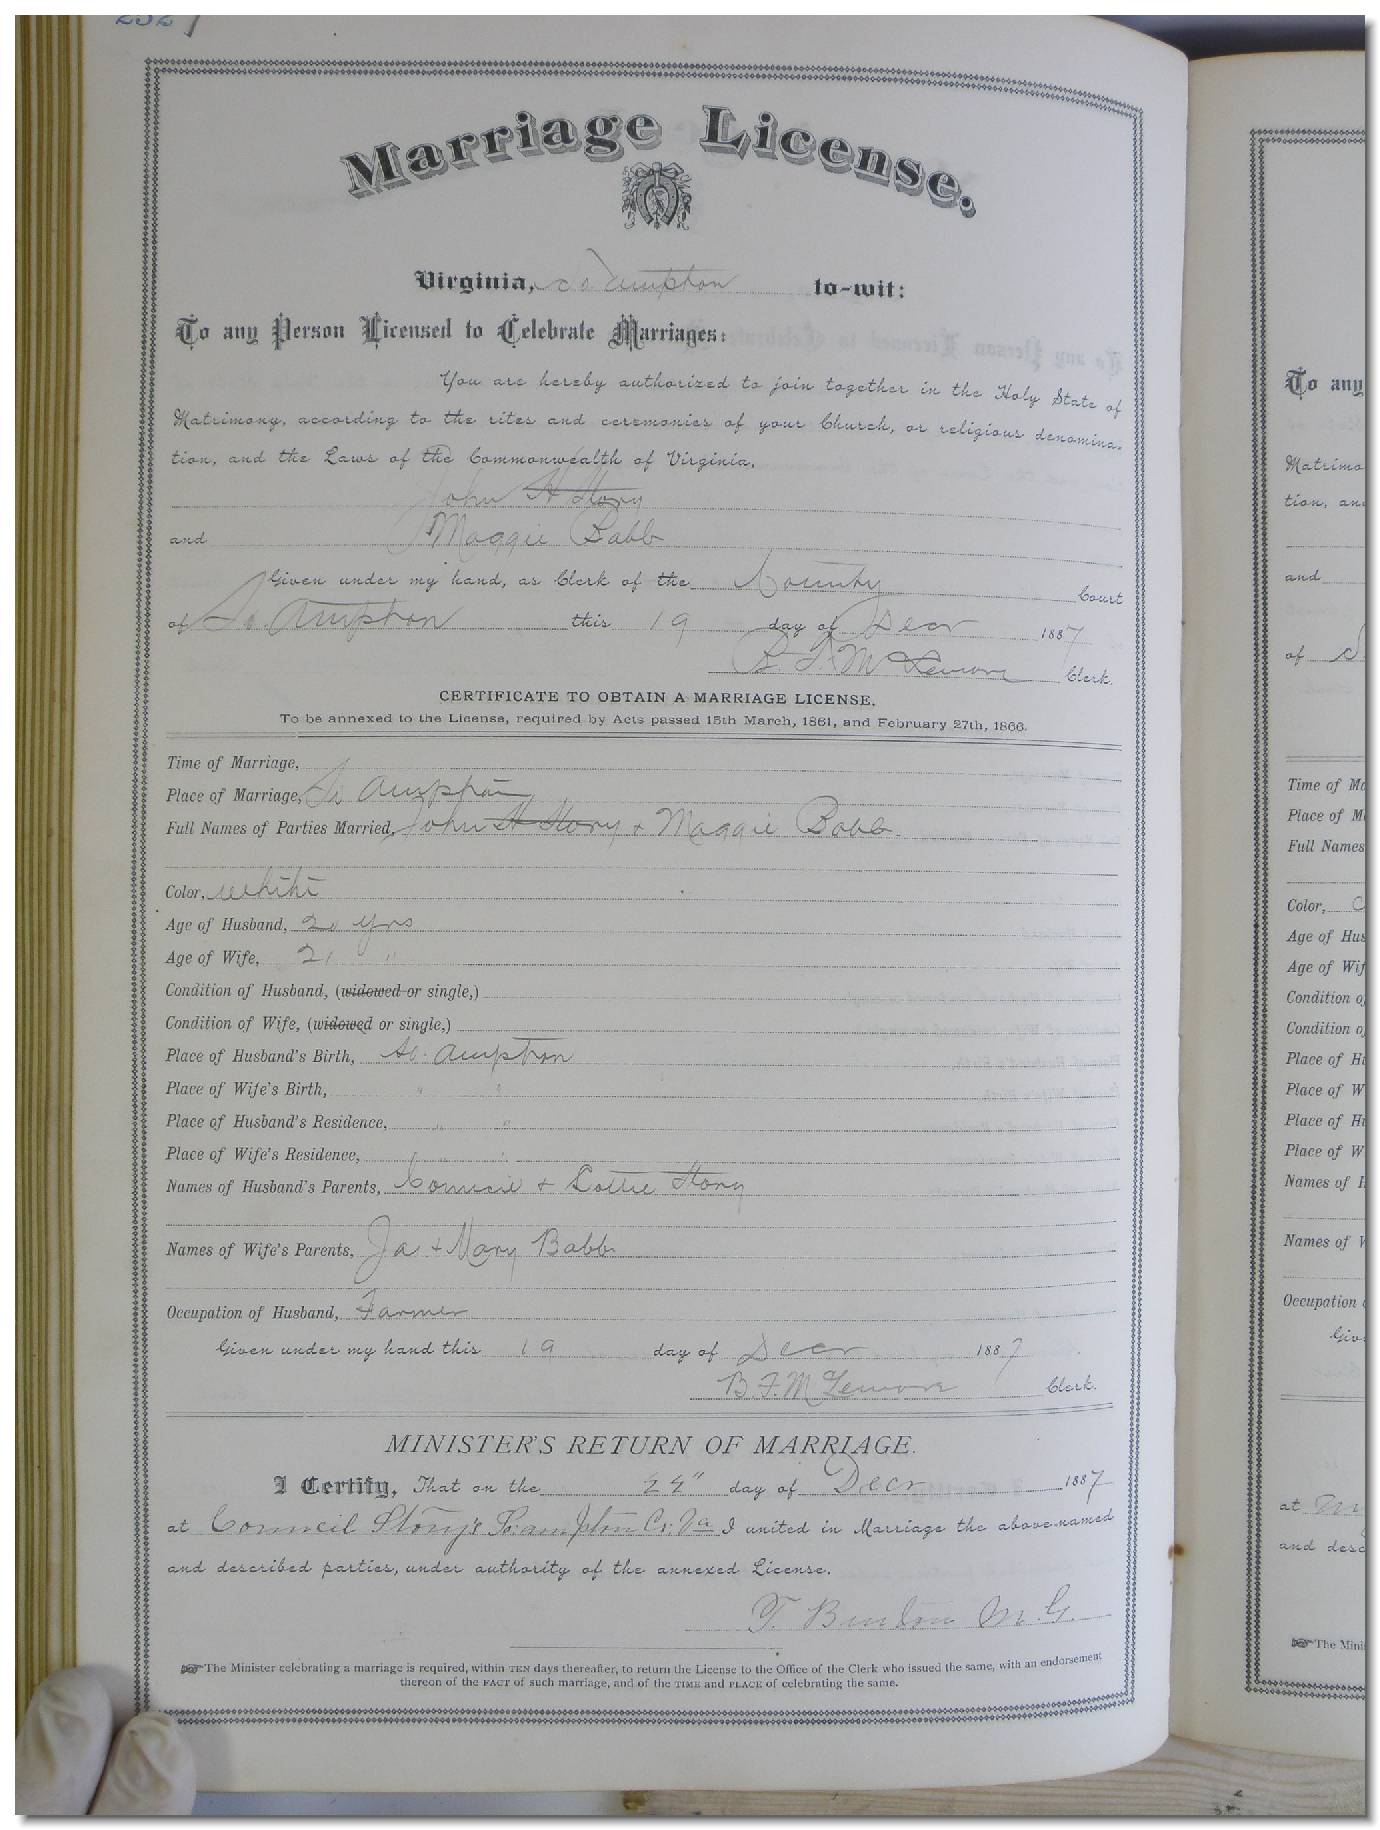 232
Marriage License.
Virginia, So ampton to-wit:
To any Person Licensed to Celebrate Marriages:
You are hereby authorized to join together in the Holy State of
Matrimony, according to the rites and ceremonies of your Church, or religious denomina-
tion, and the Laws of the Commonwealth of Virginia,
John H Story
and Maggie Babb
Given under my hand, as Clerk of the County Court
of So. ampton this 19 day of Decr 1887
B. F. McLemore Clerk.
CERTIFICATE TO OBTAIN A MARRIAGE LICENSE.
To be annexed to the License, required by Acts passed 15th March, 1861, and February 27th, 1866.
Time of Marriage,
Place of Marriage, So ampton
Full Names of Parties Married, John H Story + Maggie Babb.
Color, white
Age of Husband, 20 yrs
Age of Wife, 21 "
Condition of Husband, (widowed or single,)
Condition of Wife, (widowed or single,)
Place of Husband's Birth, So. ampton
Place of Wife's Birth, " "
Place of Husband's Residence, " "
Place of Wife's Residence, " "
Names of Husband's Parents, Council + Lottie Story
Names of Wife's Parents, Ja + Mary Babb
Occupation of Husband, Farmer
Given under my hand this 19 day of Decr 1887
B. F. McLemore Clerk.
MINISTER'S RETURN OF MARRIAGE.
I Certify, That on the 24" day of Decr 1887
at Council Story's So.ampton Co: Va I united in Marriage the above-named
and described parties, under authority of the annexed License.
T. M. G.
The Minister celebrating a marriage is required, within TEN days thereafter, to return the License to the Office of the Clerk who issued the same, with an endorsement
thereon of the FACT of such marriage, and of the TIME and PLACE of celebrating the same.
To any
Matrimo
tion, an
and
of S
Time of Ma
Place of M
Full Names
Color, C
Age of Hus
Age of Wif
Condition o
Condition o
Place of Hu
Place of W
Place of Hu
Place of W
Names of H
Names of W
Occupation
Giv
at
and desc
The Mini